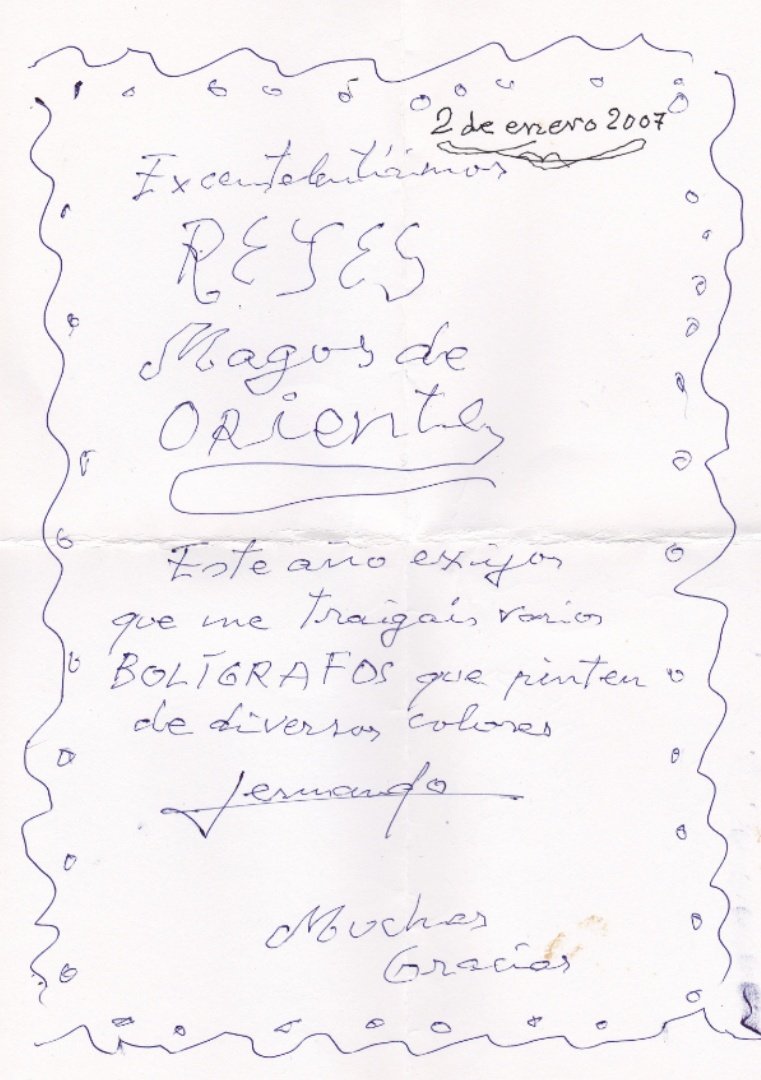 2 de enero 2007
REYES
Magos de
ORiente
Este año exijos
que me traigais varios
BOLÍGRAFOS que pinten
de diversos colores
Fernando
Muchas
Gracias